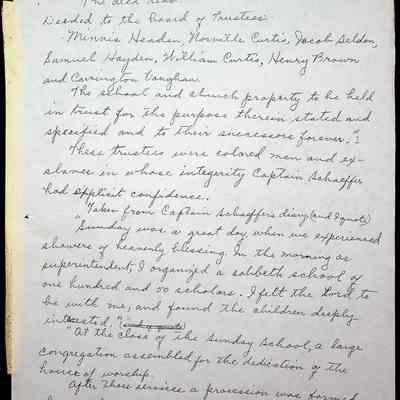 The deed read:
Deeded to the board of Trustees.
Minnis Headen, Norville Curtis, Jacob Seldon,
Samuel Hayden, William Curtis, Henry Brown
and Carrington Vaughan.
The school and church property to be held
in trust for the purpose therein stated and
specified and to their successors forever."
These trustees were colored men and ex-
slaves in whose integerity Captain Schaeffer
had explicit confidence.
"Taken from Captain Schaeffer's diary (and I quote)
"Sunday was a great day, when we experienced
showers of heavenly blessing. In the morning as
superintendent, I organized a sabbeth school of
one hundred and 50 scholars. I felt the Lord to
be with me, and found the children deeply
interested."
"At the close of the Sunday School, a large
congregation assembled for the dedication of the
house of worship.
After these services a procession was formed